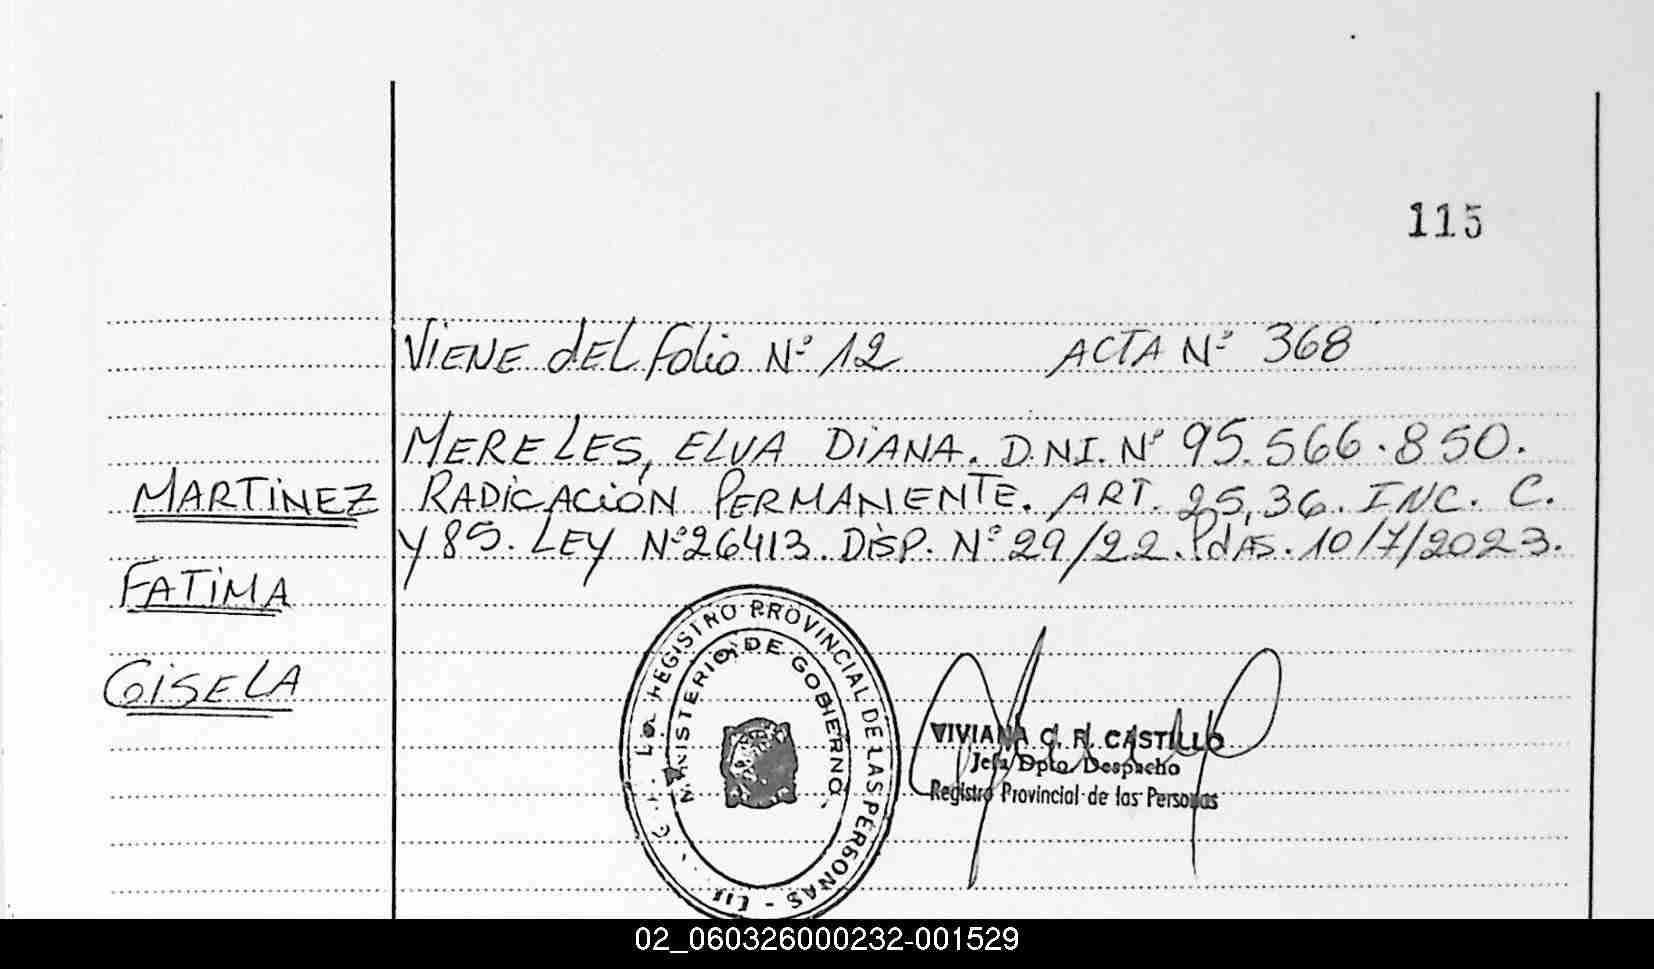 115
VIENE dEL folio Nº 12 ACTA Nº 368
MERELES, ELVA DIANA. D.N.I. Nº 95.566.850.
MARTINEZ RADICACIÓN PERMANENTE. ART. 25,36. INC. C.
Y 85. LEY Nº 26413. DISP. Nº 29/22. PdAS. 10/7/2023.
FATIMA
GISELA
REGISTRO PROVINCIAL DE LAS PERSONAS
MINISTERIO DE GOBIERNO
VIVIANA C. R. CASTILLO
Jefa Dpto Despacho
Registro Provincial de las Personas
02_060326000232-001529